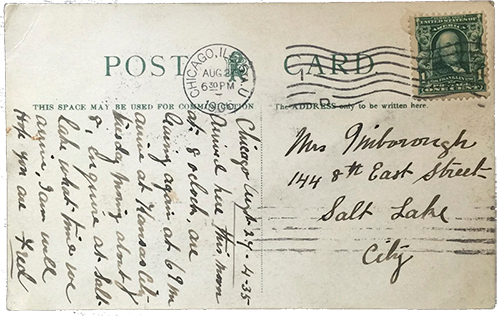 POST CARD
CHICAGO, IL
AUG 2
6 30 PM
UNITED STATES
FRANKLIN
ONE CENT
THIS SPACE MAY BE USED FOR COMMUNICATION
The ADDRESS only to be written here.
Chicago 4-35
Arrived here this morn
at 8 oclock are
leaving again at 6 9 PM
arrive at Kansas City
Tuesday morning about 9
8, Enquire at Salt
Lake what time we
arrive, I am well
Hope you are Fred
Mrs
144 8th East Street
Salt Lake
City